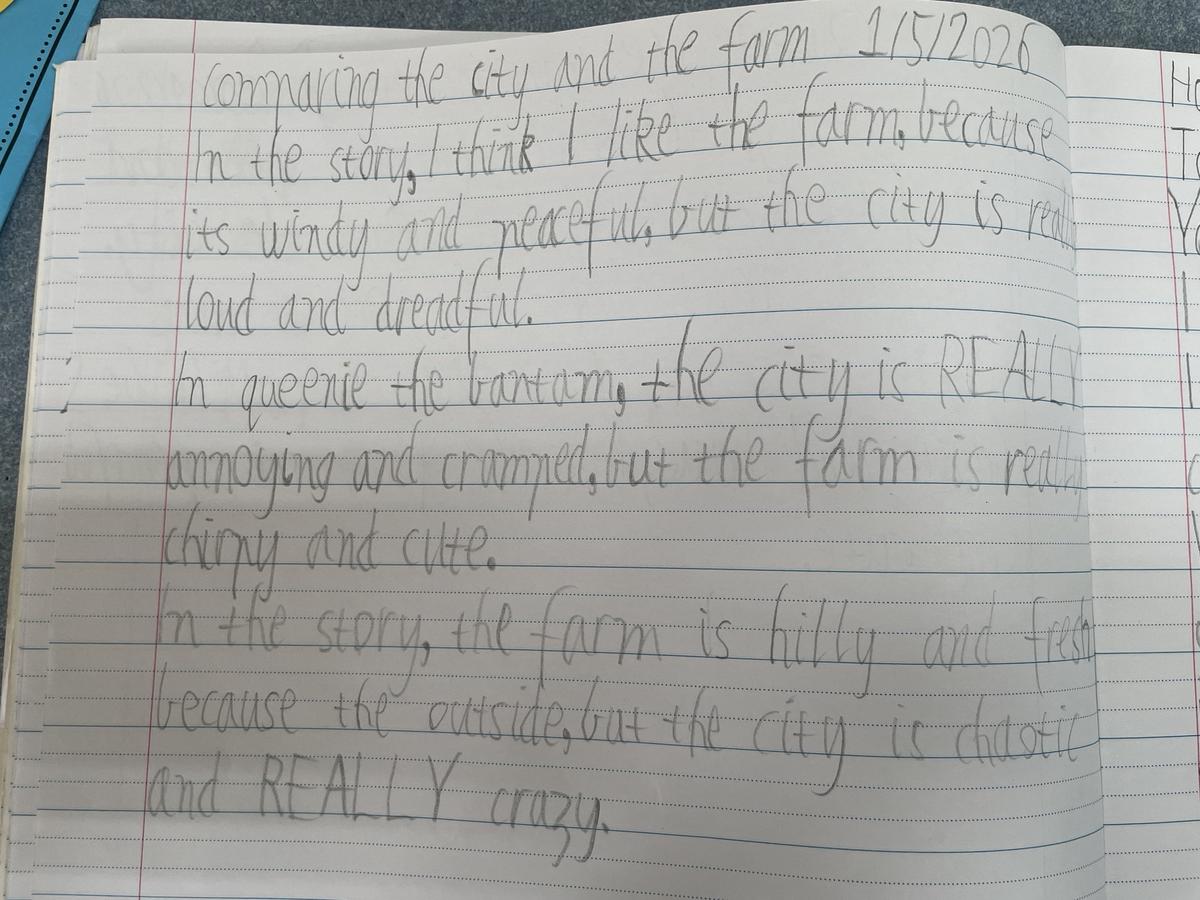 Comparing the city and the farm 1/5/2026
In the story, I think I like the farm, because
its windy and peaceful, but the city is really
loud and dreadful.
In queenie the bantam, the city is REALLY
annoying and cramped, but the farm is really
chirpy and cute.
In the story, the farm is hilly and fresh
because the outside, but the city is chaotic
and REALLY crazy.